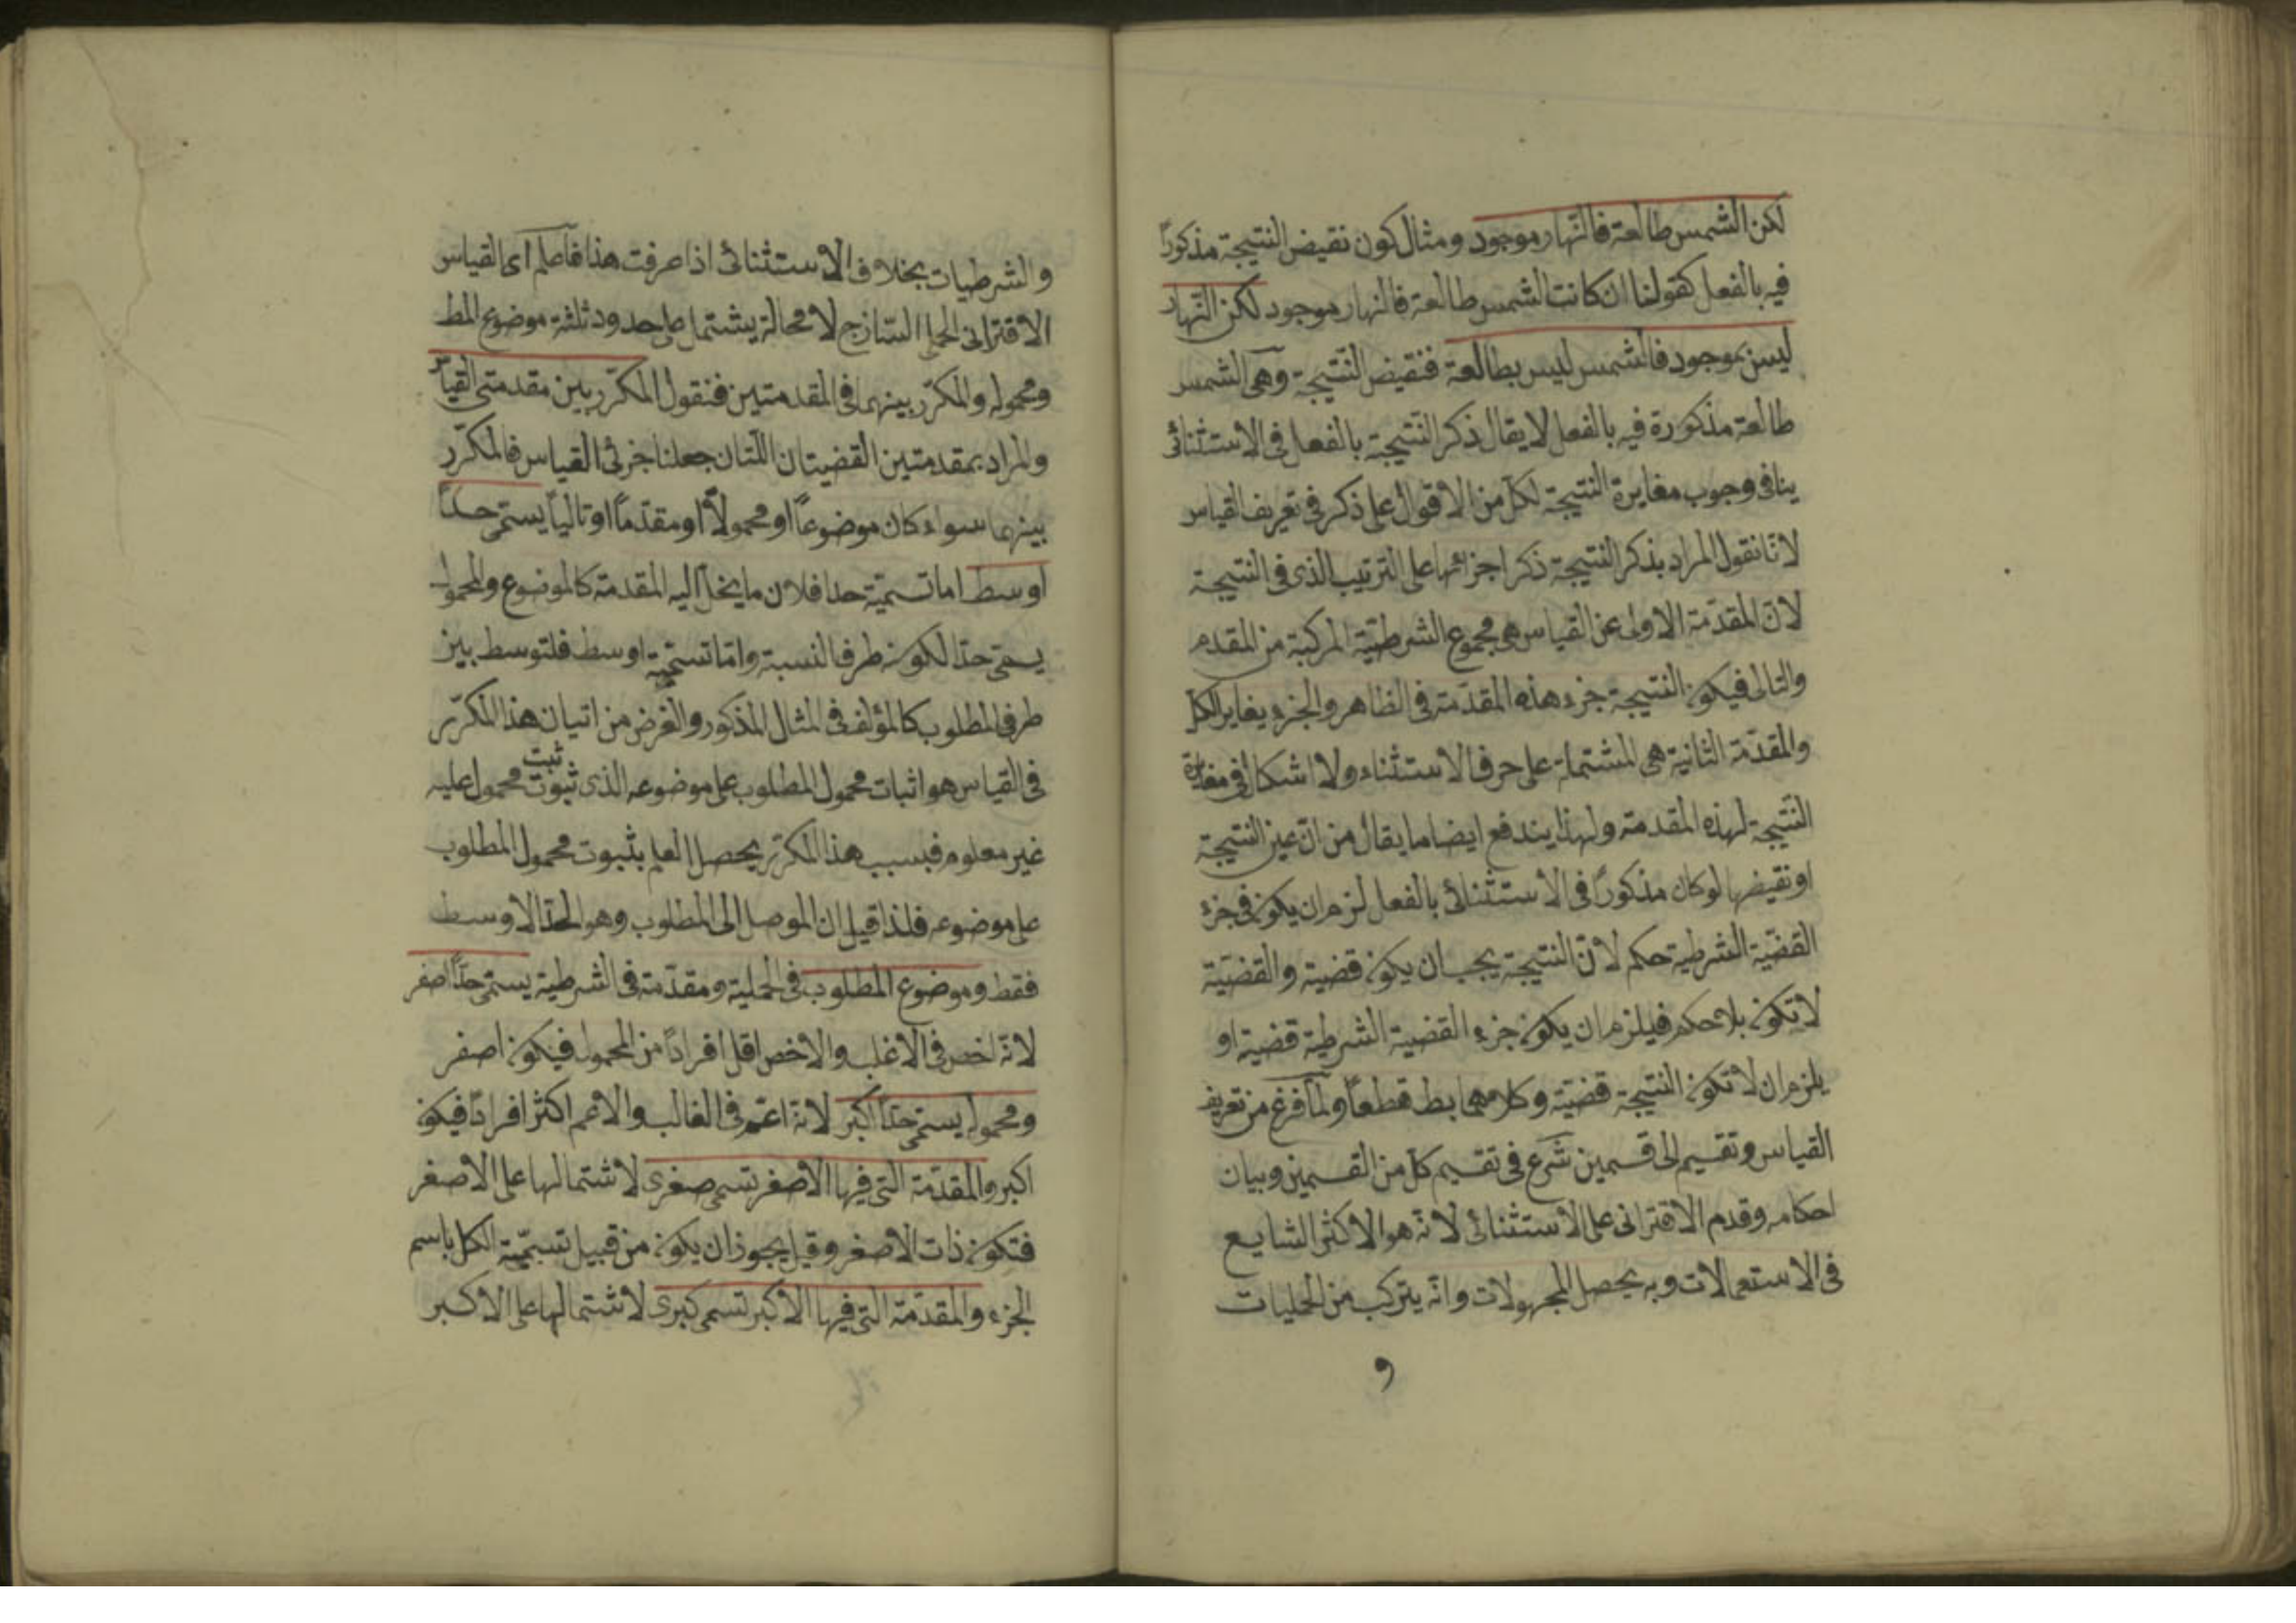 لكن الشمس طالعة فالنّهار موجود ومثال كون نقيض النتيجة مذكورًا
فيه بالفعل كقولنا ان كانت الشمس طالعة فالنهار موجود لكن النّهار
ليس بموجود فالشمس ليس بطالعة فنقيض النّتيجة وهى الشمس
طالعة مذكورة فيه بالفعل لا يقال ذكر النّتيجة بالفعل فى الاستثنائى
ينافى وجوب مغايرة النتيجة لكل من الاقوال على ذكر فى تعريف القياس
لانّا نقول المراد بذكر النتيجة ذكر اجزائها على الترتيب الذى فى النتيجة
لانّ المقدّمة الاولى عن القياس هى مجموع الشرطيّة المركبة من المقدم
والتالى فيكون النتيجة جزء هذه المقدّمة فى الظاهر والجزء يغاير الكل
والمقدّمة الثانية هى المشتملة على حرف الاستثناء ولا اشكال فى مغايرة
النّتيجة لهذه المقدمة ولهذا يندفع ايضا ما يقال من انّ عين النتيجة
او نقيضها لو كان مذكورًا فى الاستثنائى بالفعل لزم ان يكون فى جزء
القضيّة الشرطية حكم لانّ النتيجة يجب ان يكون قضية والقضيّة
لا تكون بلا حكم فيلزم ان يكون جزء القضية الشرطية قضية او
يلزم ان لا تكون النتيجة قضيّة وكلامهما بط قطعًا ولمّا فرغ من تعريف
القياس وتقسيم الى قسمين شرع فى تقسيم كل من القسمين وبيان
احكامه وقدم الاقترانى على الاستثنائى لانّه هو الاكثر الشايع
فى الاستعمالات وبه يحصل المجهولات وانّه يتركب من الحمليات
و
والشرطيات بخلاف الاستثنائى اذا عرفت هذا فاعلم اى القياس
الاقترانى الحملى السّازج لا محالة يشتمل على حدود ثلثة موضوع المط
ومحموله والمكرّر بينهما فى المقدمتين فنقول المكرّر بين مقدمتى القياس
والمراد بمقدمتين القضيتان اللّتان جعلنا جزئى القياس فالمكرّر
بينهما سواء كان موضوعًا او محمولاً او مقدّمًا او تاليًا يسمّى حدًا
اوسط اما تسميّة حدا فلان ما يخلّ اليه المقدمة كالموضوع والمحمول
يسمّى حدّا لكونه طرف النسبة وامّا تسمّيته اوسط فلتوسط بين
طرفى المطلوب كالمؤلف فى المثال المذكور والغرض من اتيان هذا المكرّر
فى القياس هو اثبات محمول المطلوب على موضوعه الذى ثبوت ثبت محمول عليه
غير معلوم فبسبب هذا المكرّر يحصل العلم بثبوت محمول المطلوب
على موضوعه فلذا قيل ان الموصل الى المطلوب وهو الحدّ الاوسط
فقط وموضوع المطلوب فى الحملية ومقدّمة فى الشرطية يسمّى حدًّا اصغر
لانّه اخص فى الاغلب والاخص اقل افرادًا من المحمول فيكون اصغر
ومحموله يسمّى حدًّا اكبر لانّه اعمّ فى الغالب والاعم اكثر افرادًا فيكون
اكبر والمقدّمة التى فيها الاصغر تسمى صغرى لاشتمالها على الاصغر
فتكون ذات الاصغر وقيل يجوز ان يكون من قبيل تسمّية الكل باسم
الجزء والمقدّمة التى فيها الاكبر تسمى كبرى لاشتمالها على الاكبر